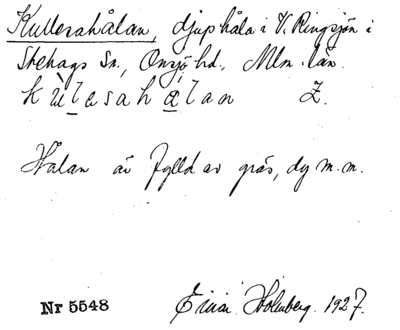 Kullesahålan, djup håla i V. Ringsjön i
Stehags Sn., Onsjö hd., Mlm. län.
kùlesahålan Z.
Hålan är fylld av gräs, dy m.m.
Nr 5548 Einar Holmberg. 1927.